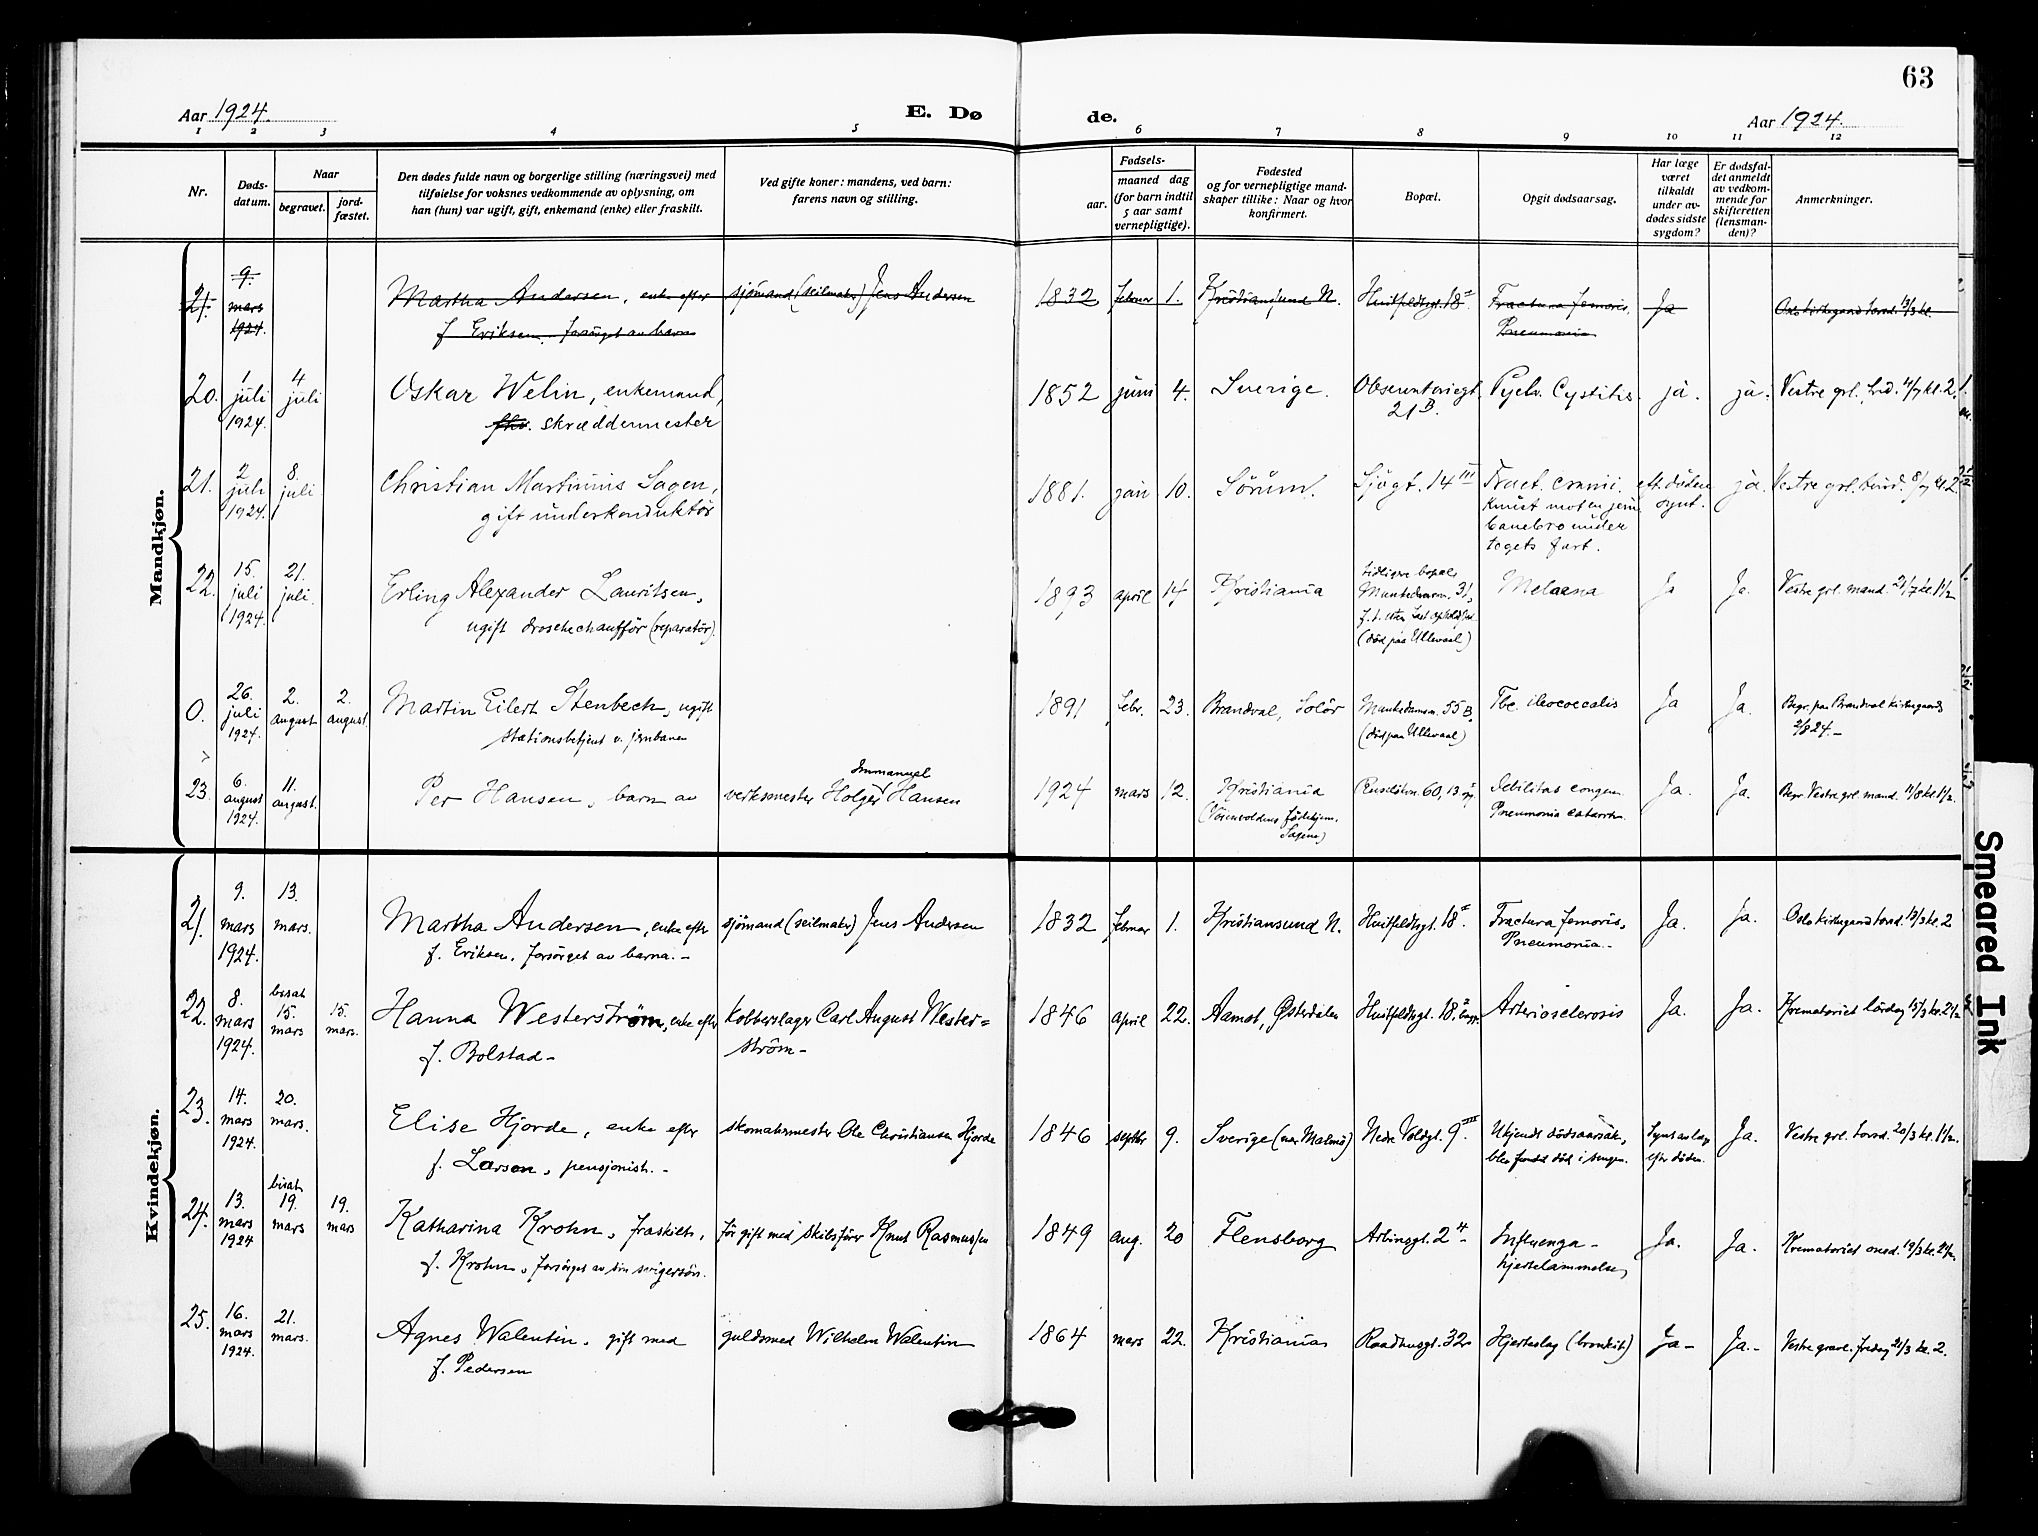 63
Aar 1924.
E. Dø
de.
Aar 1924.
1 2 3 4 5 6 7 8 9 10 11 12
Nr.
Døds-
datum.
Naar
begravet.
jord-
fæstet.
Den dødes fulde navn og borgerlige stilling (næringsvei) med
tilføielse for voksnes vedkommende av oplysning, om
han (hun) var ugift, gift, enkemand (enke) eller fraskilt.
Ved gifte koner: mandens, ved barn:
farens navn og stilling.
Fødsels-
aar.
maaned dag
(for barn indtil
5 aar samt
vernepligtige).
Fødested
og for vernepligtige mand-
skaper tillike: Naar og hvor
konfirmert.
Bopæl.
Opgit dødsaarsag.
Har læge
været
tilkaldt
under av-
dødes sidste
sygdom?
Er dødsfal-
det anmeldt
av vedkom-
mende for
skifteretten
(lensman-
den)?
Anmerkninger.
Mandkjøn.
21. 9. mars 1924. Martha Andersen, enke efter sjömand (seilmaker) Jens Andersen 1832 februar 1. Kristiansund N. Huitfeldtsgt. 18 Fractura femoris, Ja Oslo kirkegaard torsd. 13/3 kl.
f. Eriksen. forsörget av barna Pneumonia
20. 1 juli 1924. 4 juli Oskar Welin, enkemand, 1852 juni 4. Sverige. Observatoriegt. 21 B. Pyelo. Cystitis. ja. ja. Vestre grl. 4/7 kl. 2.
fhv. skræddermester
21. 2 juli 1924. 8. juli Christian Martinius Sagen, 1881. jan 10. Sörum. Sjögt. 14 III Fract. cranii. eft. döden ja. Vestre grl. tirsd. 8/7 kl. 2.
gift underkonduktör Knust mot en jern synt.
banebro under
togets fart.
22. 15. juli 1924. 21. juli. Erling Alexander Lauritsen, 1893 april 14 Kristiania tidligere bopæl Munkedamsv. 31, Melaena Ja Ja. Vestre grl. mand. 21/7 kl. 1½
ugift droschechaufför (reparatör).
(död paa Ullevaal)
0. 26. juli 1924. 2. august 2. august. Martin Eilert Stenbech, ugift 1891 febr. 23. Brandval, Solör Munkedamsv. 55 B, Tbc. ileocoecalis Ja Ja. Begr. paa Brandval kirkegaard
stationsbetjent v. jernbanen (död paa Ullevaal) 2/8 24.-
23. 6. august 1924. 11. august. Per Hansen, barn av verksmester Holger Immanuel Hansen 1924 mars 12. Kristiania 60, 13 Debilitas congen. Ja. Ja. Begr. Vestre grl. mand. 11/8 kl. 1½.
födehjem, Pneumonia catarrh.
Sagene)
Kvindekjøn.
21. 9. mars 1924. 13. mars. Martha Andersen, enke efter sjömand (seilmaker) Jens Andersen 1832 februar 1. Kristiansund N. Huitfeldtsgt. 18. Fractura femoris, Ja. Ja. Oslo kirkegaard torsd. 13/3 kl. 2
f. Eriksen. forsörget av barna.- Pneumonia.-
22. 8. mars 1924. bisat 15. mars 15. mars. Hanna Westerström, enke efter kolberslager Carl August Wester= 1846 april 22. Aamot, Østerdalen Huitfeldtsgt. 18. Arteriosclerosis Ja. Ja. Krematoriet lördag 15/3 kl. 2½
f. Bolstad- ström-
23. 14. mars 1924. 20. mars. Elise Hjorde, enke efter skomakermester Ole Christiansen Hjorde 1846 septbr 9. Sverige (nær Malmö) Nedre Voldgt. 9 III Ukjendt dödsaarsak, Synt av læge Ja. Vestre grl. torsd. 20/3 kl. 1½.
f. Larsen, pensjonist.- blev fundet död i sengen. efter döden.
24. 13. mars 1924 bisat 19. mars 19. mars Katharina Krohn, fraskilt, för gift med skibsförer Knut Rasmussen 1849 aug. 20 Flensborg Arbinsgt. 2 4 Influenza- Ja. Ja. Krematoriet onsd. 19/3 kl. 2½.
f. Krohn, forsörget av sin svigersön. hjertelammelse,
25. 16. mars 1924. 21. mars. Agnes Walentin, gift med guldsmed Wilhelm Walentin 1864 mars 22. Kristiania Raadhusgt. 32 Hjerteslag (bronkit) Ja- Ja.- Vestre gravl. fredag 21/3 kl. 2.
f. Pedersen
Smeared Ink